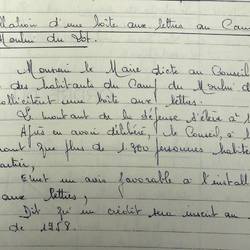 allation d'une boîte aux lettres au Cam
Moulin du Lot.
Monsieur le Maire dicte au Conseil
des habitants du Camp du Moulin d
ollicitent une boîte aux lettres.
Le montant de la dépense s'élève à 1
Après en avoir délibéré, le Conseil, à
nant que plus de 1.300 personnes habite
artier,
Emet un avis favorable à l'install
aux lettres,
Dit qu'un crédit sera inscrit au
de 1958.